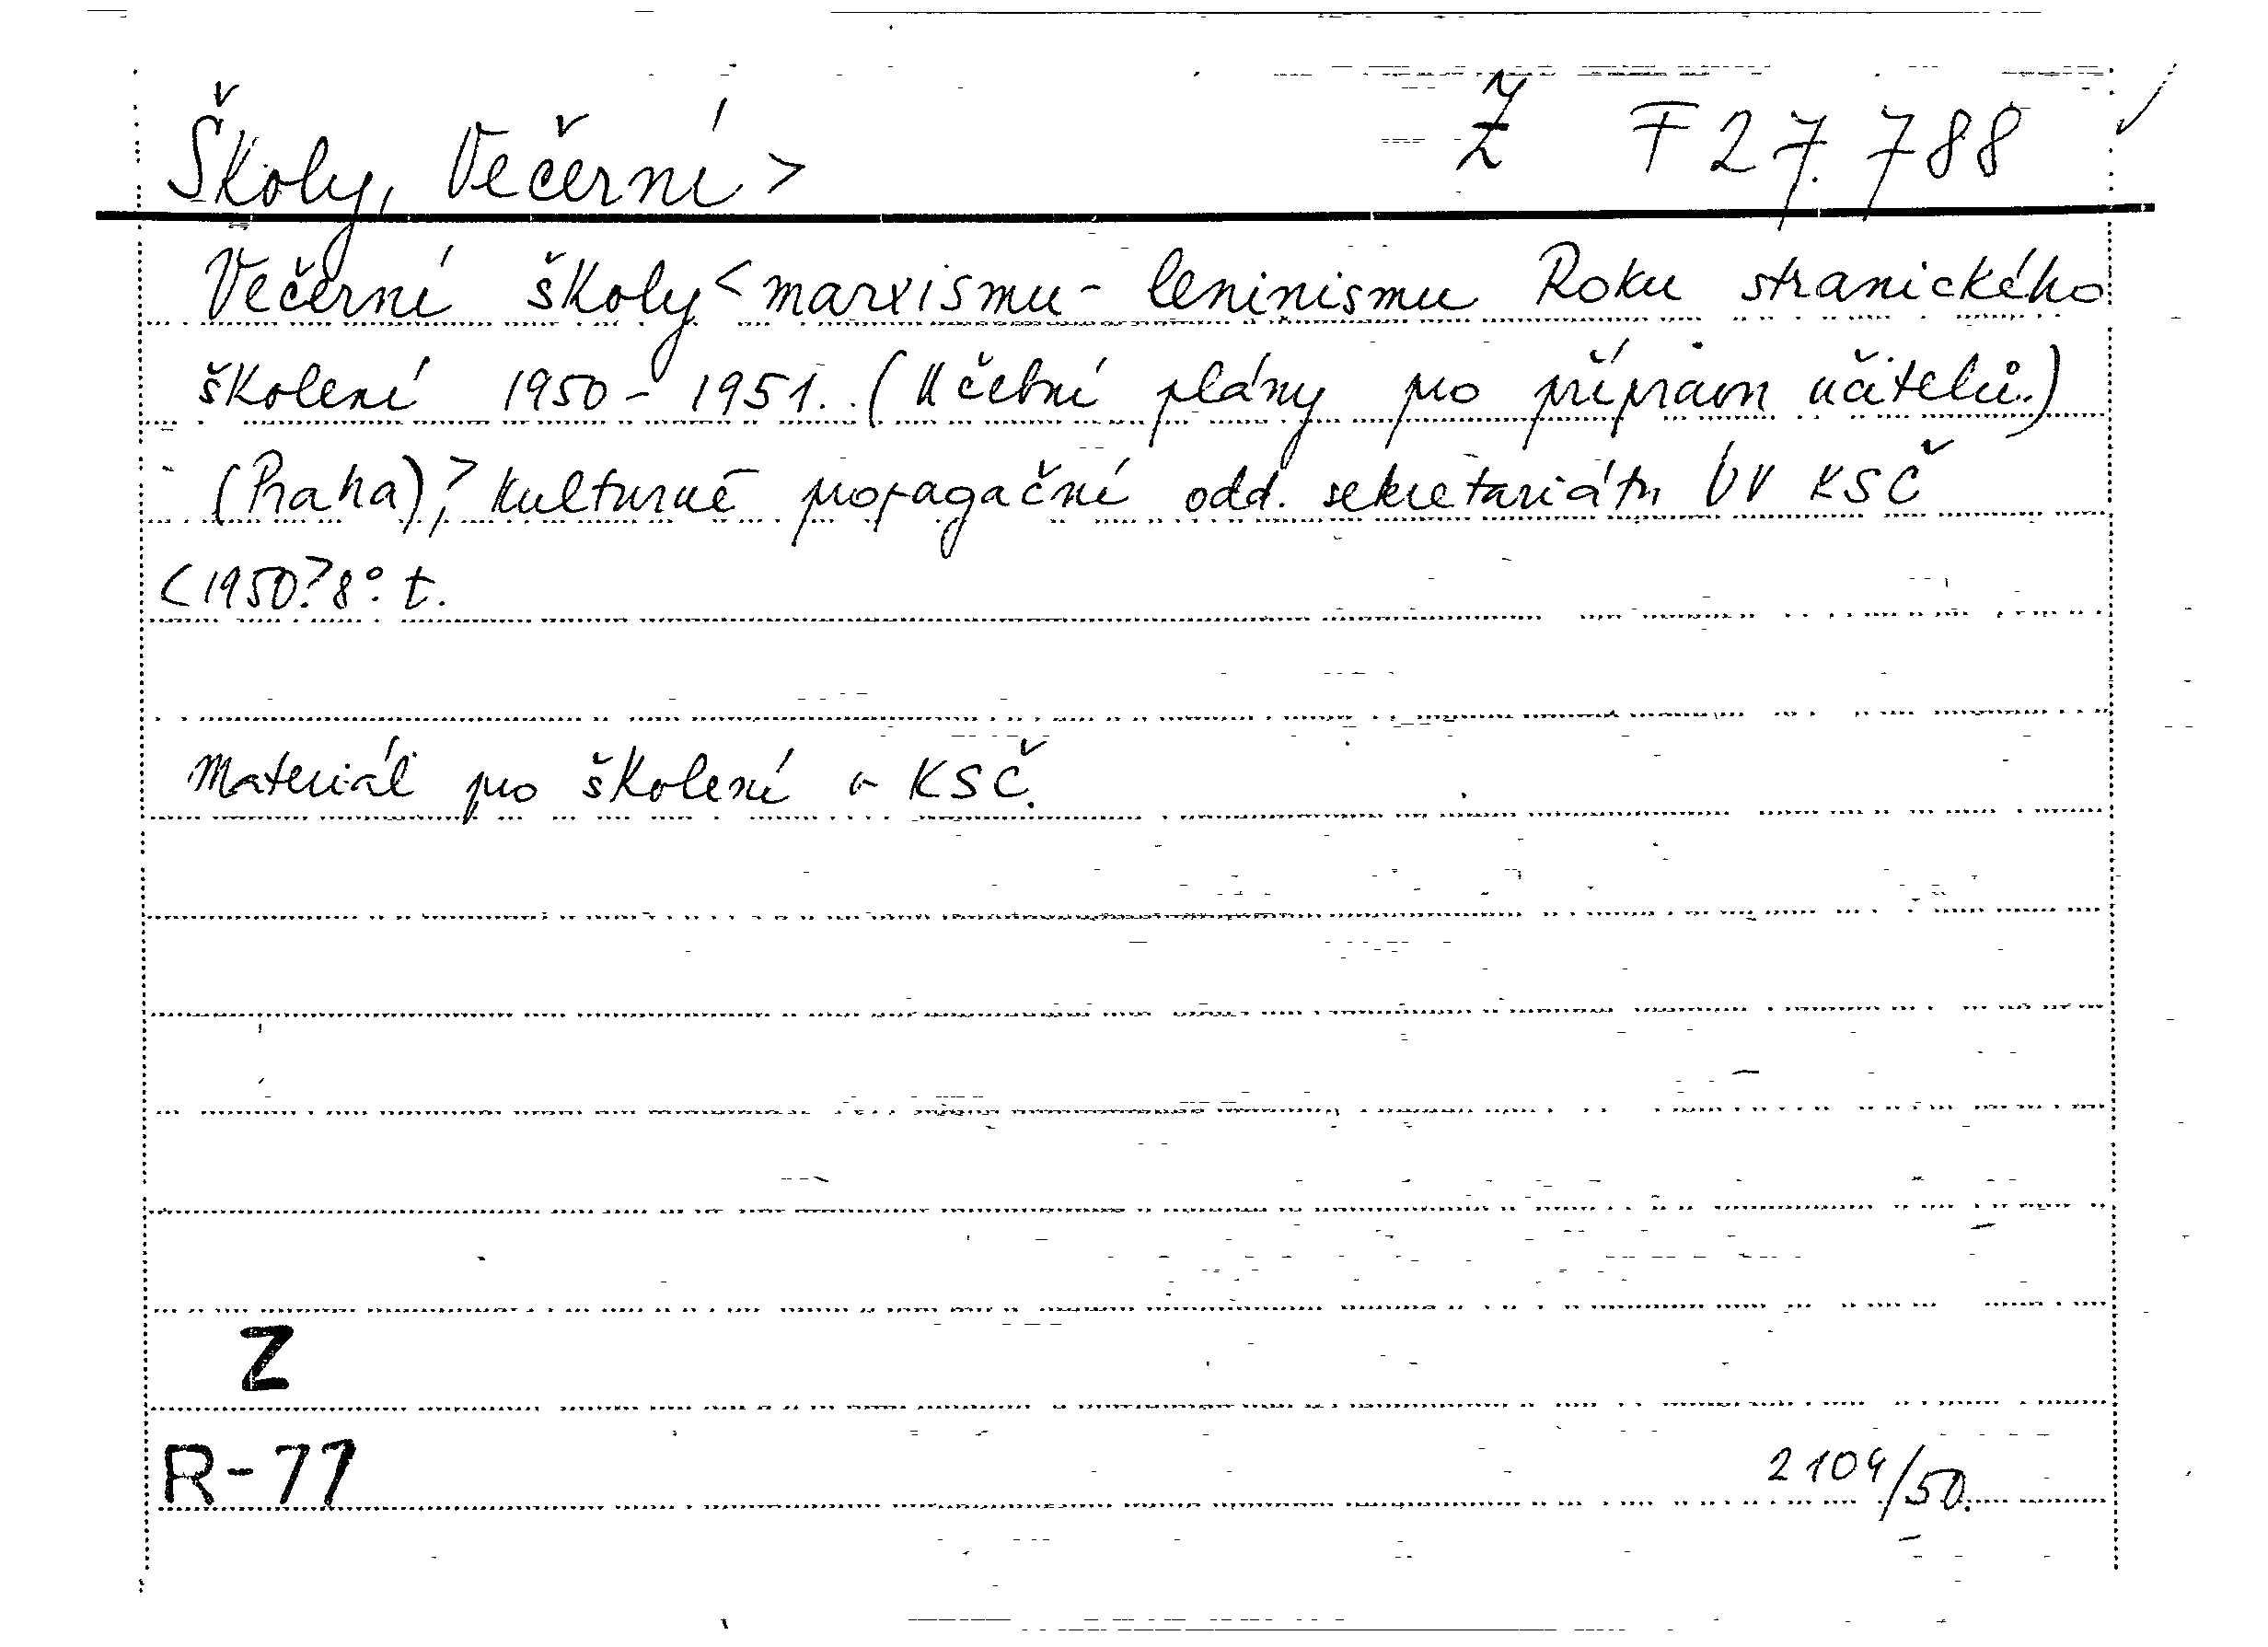 Školy, Večerní > Ž F 27.788
Večerní školy < marxismu-leninismu Roku stranického
školení 1950-1951. (Učební plány pro přípravu učitelů.)
(Praha), > Kulturně propagační odd. sekretariátu ÚV KSČ
<1950? 8° t.
Materiál pro školení v KSČ.
Z
R-77
2104/50.